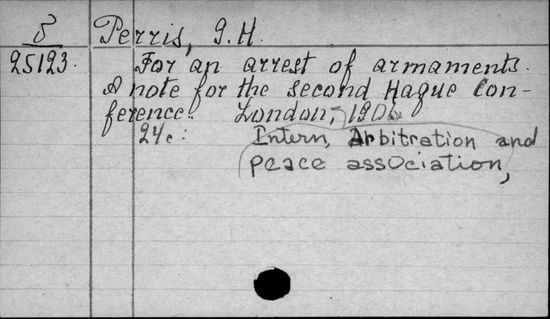 5 Perris, G. H.
25123. For an arrest of armaments.
A note for the second Hague Con-
ference. London, 1906
24c: Intern, Arbitration and
peace association,